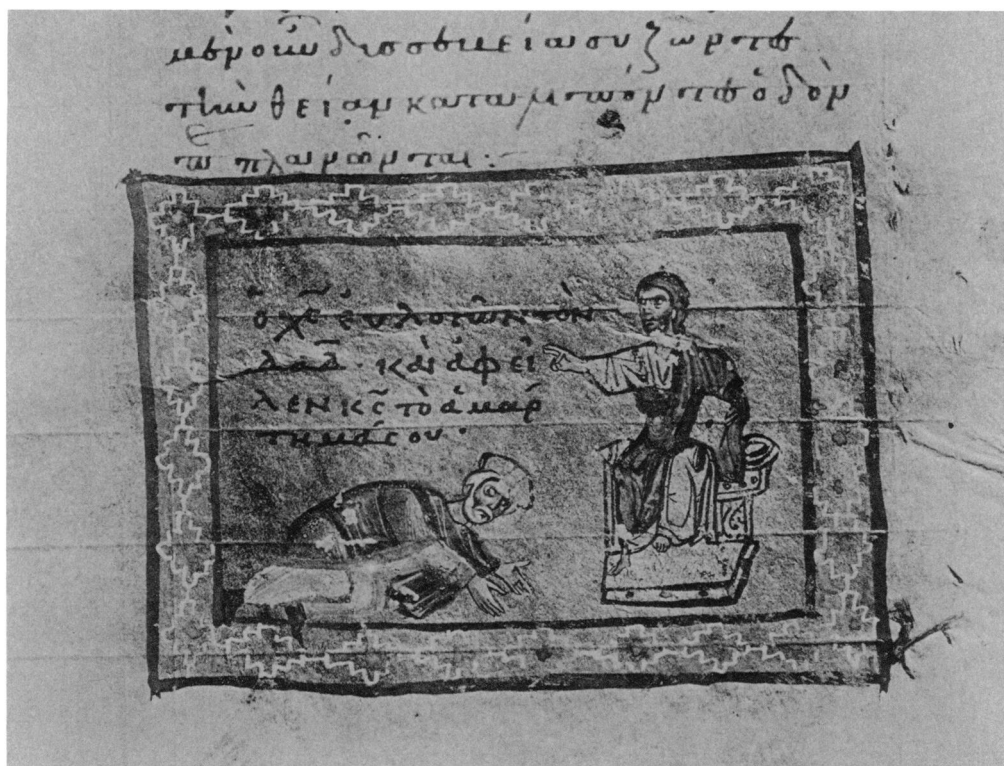 δυσσεβεία συζῶντες
τὴν θείαν καταλιπόντες ὁδὸν
πλανῶνται:
ὁ χ̅ς̅ εὐλογῶν τὸν
δα̅δ̅· καὶ ἀφεῖ
λεν κ̅ς̅ τὸ ἁμάρ
τημά σου·